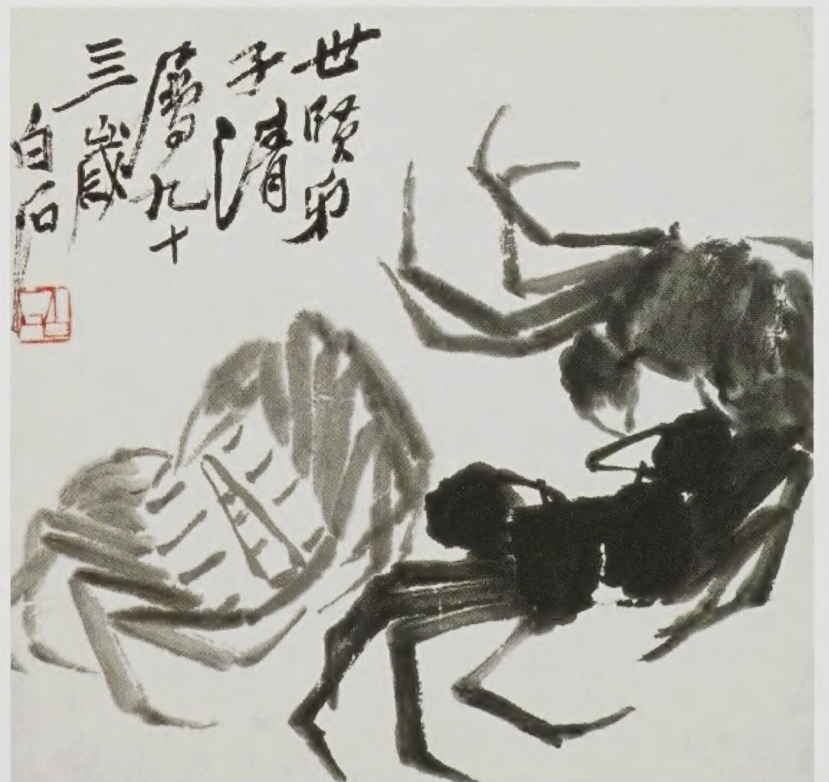 世賢弟
子清
屬九十
三歲
白石